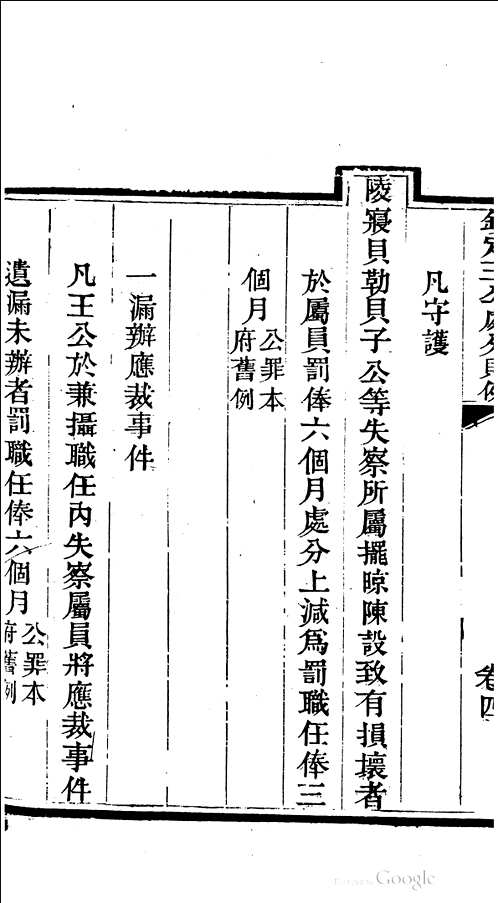 欽定王公處分則例
卷四
凡守護
陵寢貝勒貝子公等失察所屬擺晾陳設致有損壞者
於屬員罰俸六個月處分上減爲罰職任俸三
個月公罪本府舊例
一漏辦應裁事件
凡王公於兼攝職任內失察屬員將應裁事件
遺漏未辦者罰職任俸六個月公罪本府舊例
Google